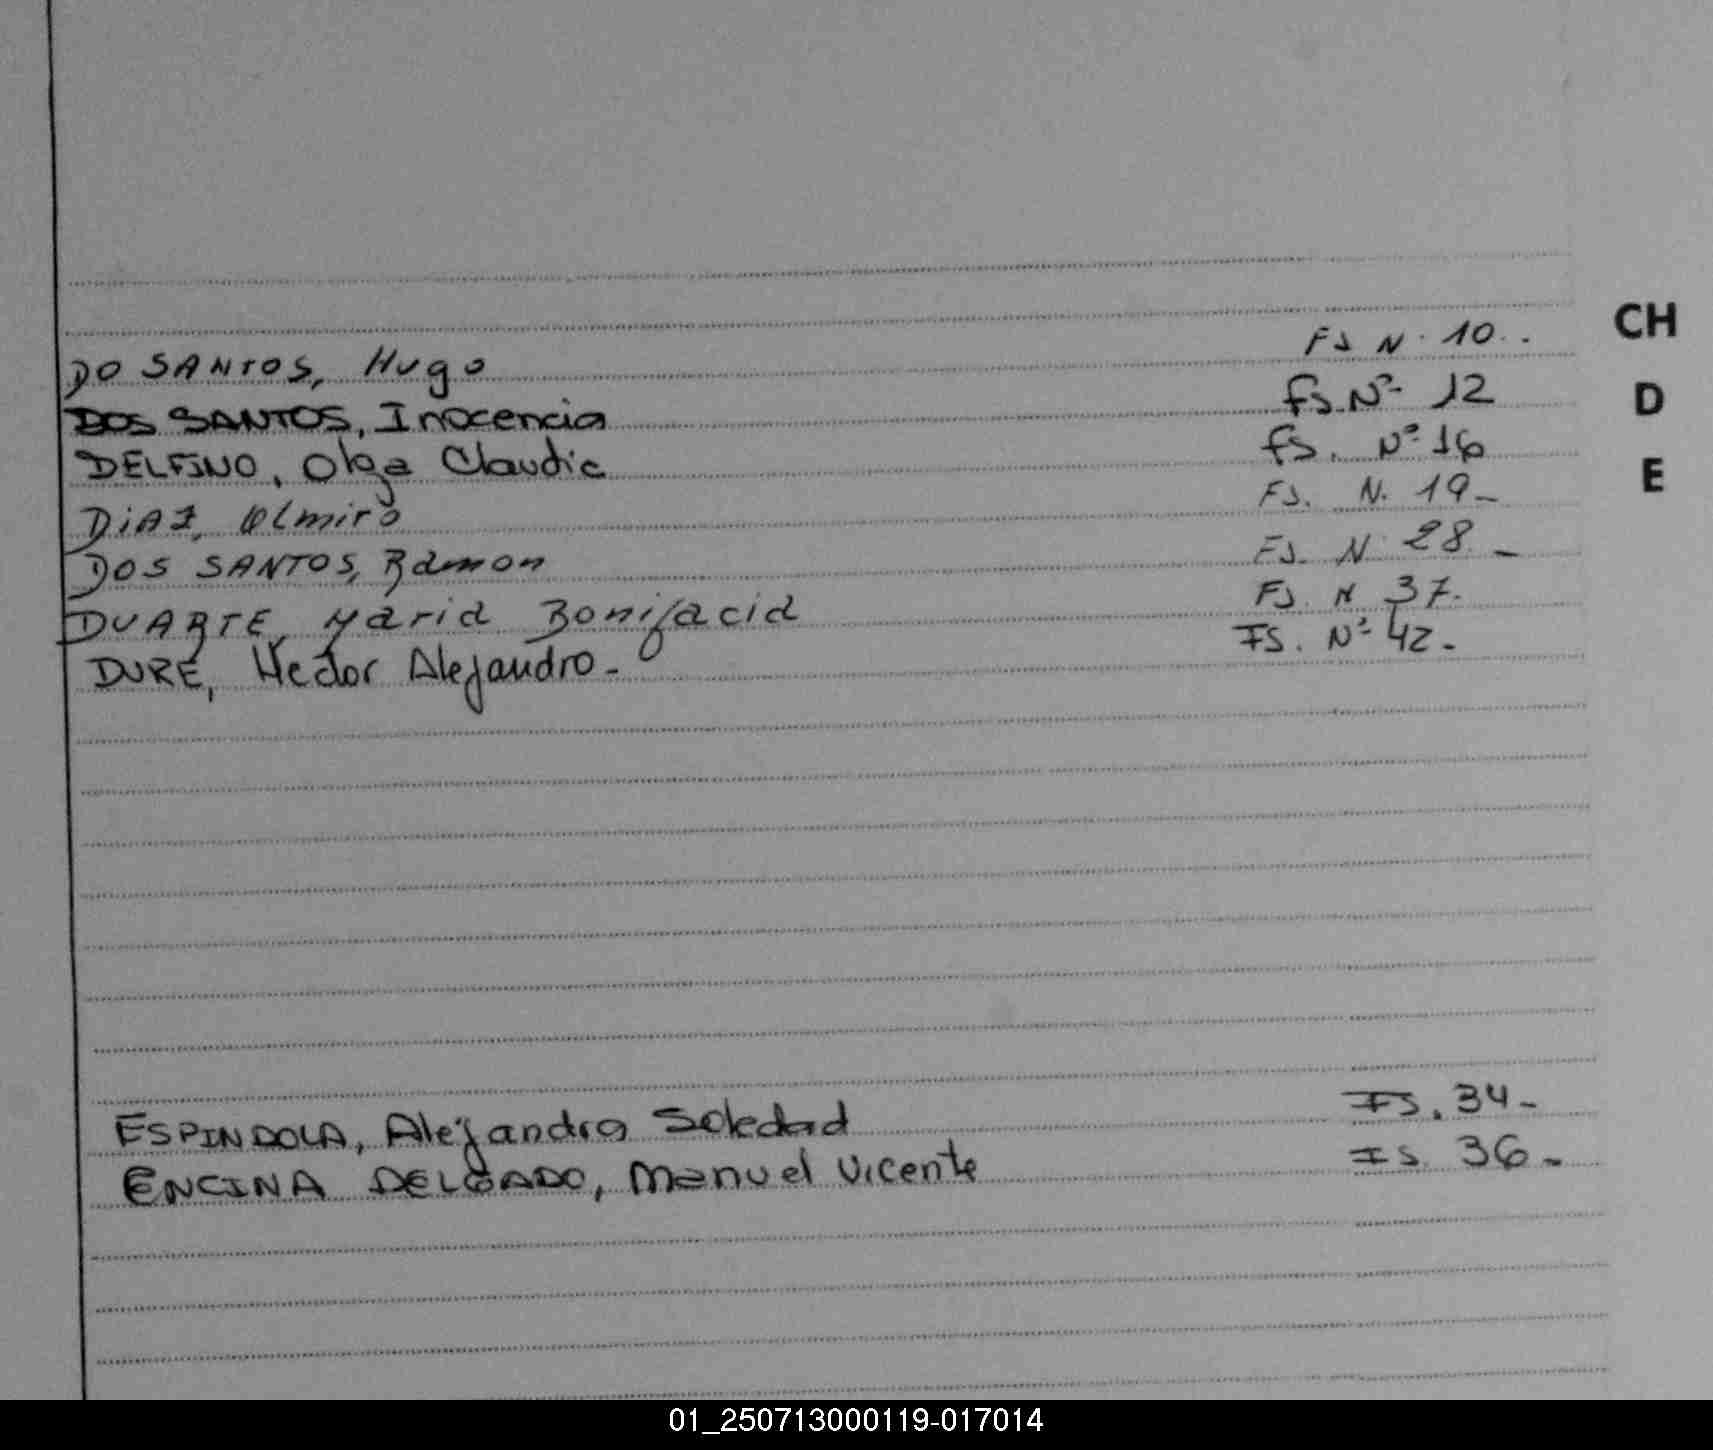 CH
D
E
DO SANTOS, Hugo FS N. 10..
DOS SANTOS, Inocencia fs. Nº 12
DELFINO, Olga Claudia fs. Nº 16
DiAZ, Olmiro FS. N. 19-
DOS SANTOS, Ramon FS. N 28-
DUARTE, Maria Bonifacia FS. N 37.
DURE, Hector Alejandro- FS. Nº 42-
ESPINDOLA, Alejandra Soledad FS. 34-
ENCINA DELGADO, Manuel Vicente FS. 36-
01_250713000119-017014